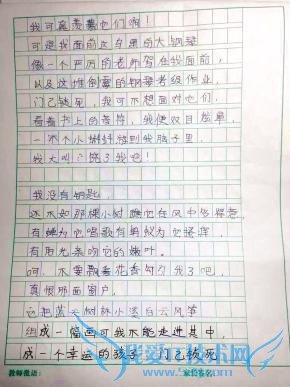 我可真羡慕他们啊！
可是我面前这台黑的大钢琴
像一个严厉的老师驾在我面前，
以及这堆倒霉的钢琴考级作业，
门已锁死，我可不想面对他们，
看着书上的音符，我便双目发草，
一个个小蝌蚪游到我脑子里，
我大叫：饶了我吧！
我没有钥匙，
还不如那棵小树瞧它在风中多惬意，
有蝉为它唱歌有鸟以为它搔痒，
有阳光亲吻它的嫩叶。
呵，不要飘着花香勾引我了吧，
真恨那面窗户，
它把蓝天树林小溪白云风筝
组成一幅画可我不能走进其中
成一个幸运的孩子 门已锁死
教师批语：
家长签名：